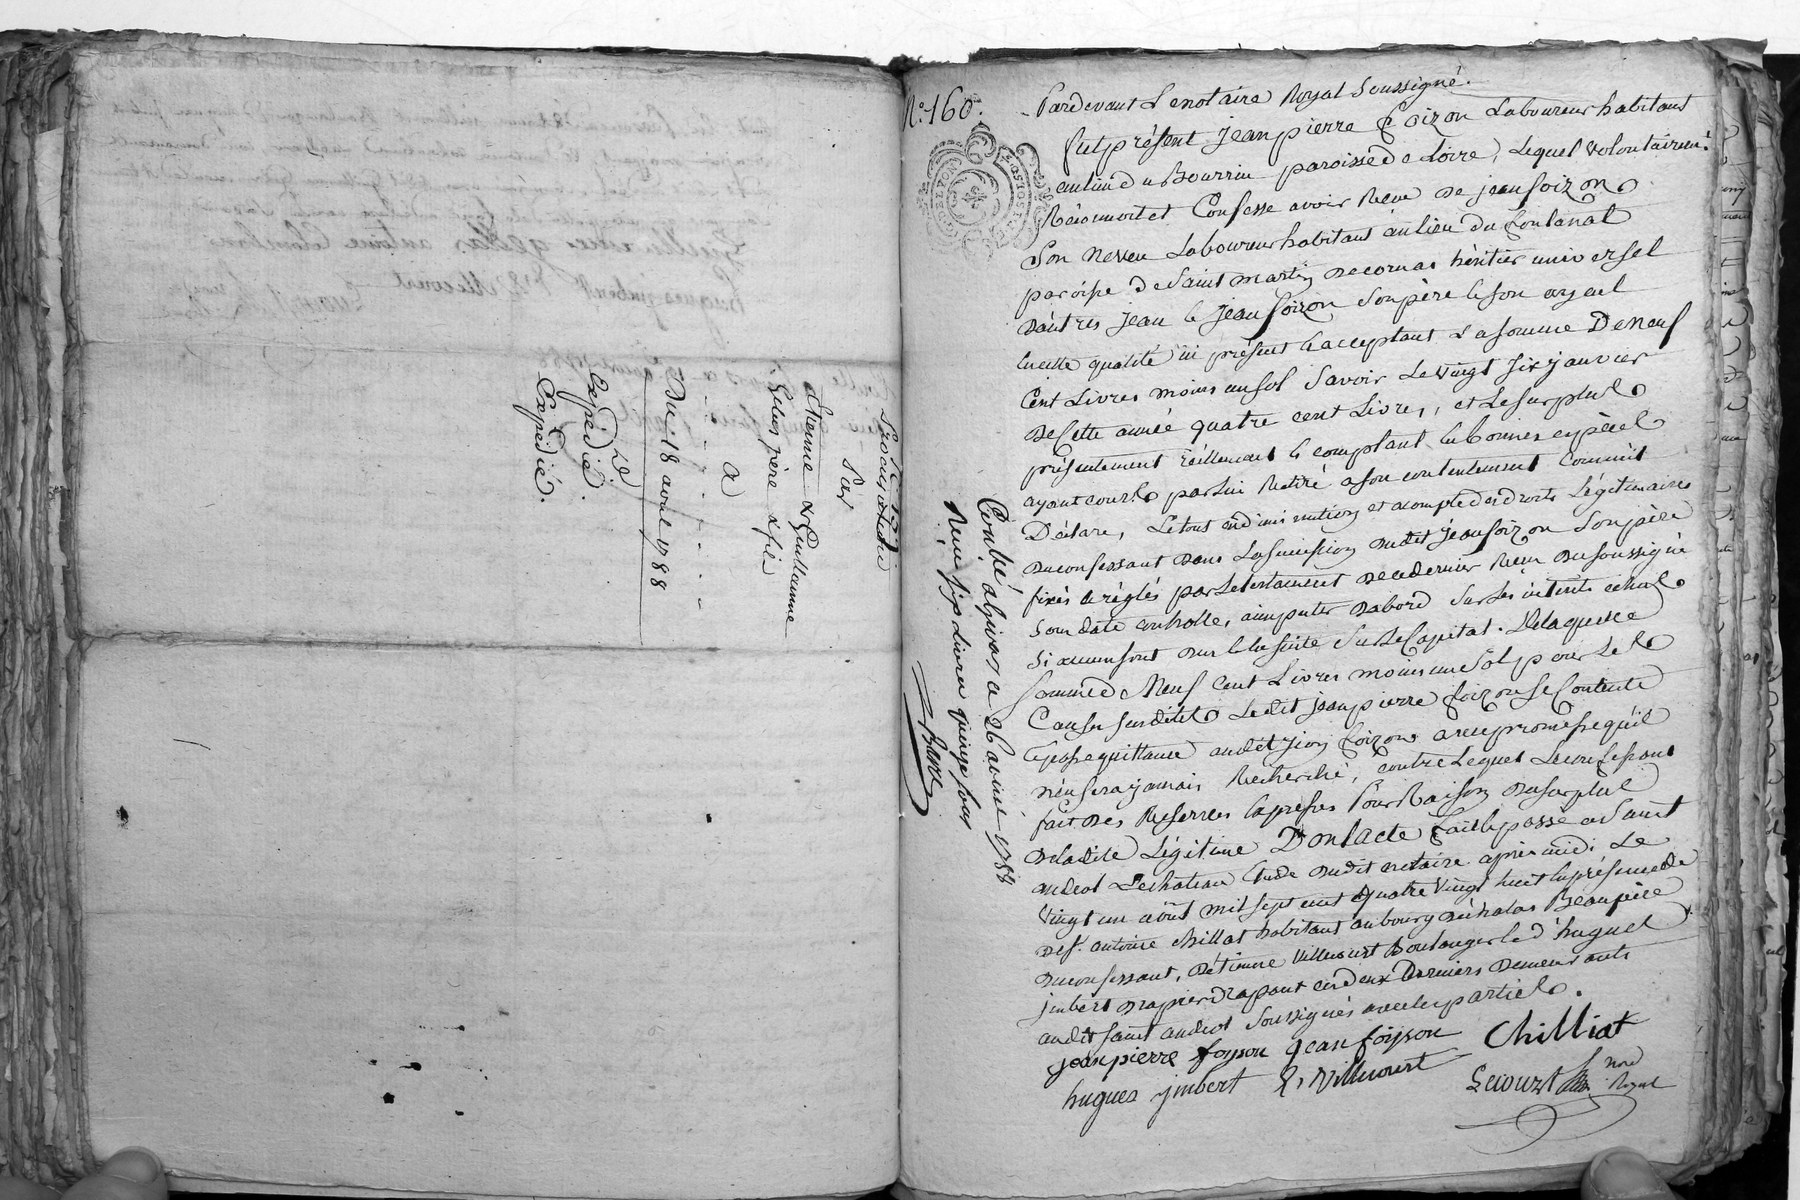 L'iocie
Par
Etienne & Guillaume
Gelas père & fils
a
Du 18 avril 1788
Expédié.
Expédié.
N.° 160.
Pardevant Le notaire Royal Soussigné.
fut présent jean pierre foizon Laboureur habitant
au lieu du Bourrin paroisse de Loire, Lequel volontairem.t
Reconnoit et Confesse avoir Reçu de jean foizon
Son Neveu Laboureur habitant au lieu du fontanat
paroisse de Saint martin de cornas héritier universel
d'autres jean & jean foizon Son père & son ayeul
en cette qualité ici présent & acceptant La somme De Neuf
Cent Livres moins un sol Savoir Le vingt six janvier
de Cette année quatre cent Livres, et Le surplus
présentement réellement & comptant en bonnes espèces
ayant cours par lui Retiré a son contentement comm'il
Déclare, Le tout en diminution et acompte des droits Légitimaires
du confessant dans La succession dudit jean foizon Son père
fixés & réglés par le testament de ce dernier Reçu du soussigné
sous date controlle, a imputer d'abord Sur Les intérêts échus
Si aucun sont dus & ensuite Sur Le Capital. De laquelle
Somme de Neuf Cent Livres moins un Sol pour Les
Causes susdites Ledit jean pierre foizon Se Contente
& passe quittance audit jean foizon avec promesse qu'il
n'en sera jamais Recherché, contre Lequel Le confessant
fait des Reserves expresses Pour Raison du surplus
de ladite Légitime Dont acte fait & passé a Saint
andeol Le chateau Etude dudit notaire après midi Le
vingt un août mil sept cent quatre vingt huit en présence de
de s.r antoine chillat habitant au bourg d'échalas Beaupère
du confessant, d'étienne Villecourt Boulanger & d'hugues
jmbert drapier drapant ces deux Derniers Demeurants
audit saint andeol Soussignés avec les parties.
jean pierre foyson jean foyson Chilliat
hugues jmbert E. Villecourt Lecourt no.re Royal
Con.lé a givors a 26 aout 1788
Reçu six Livres quinze sous